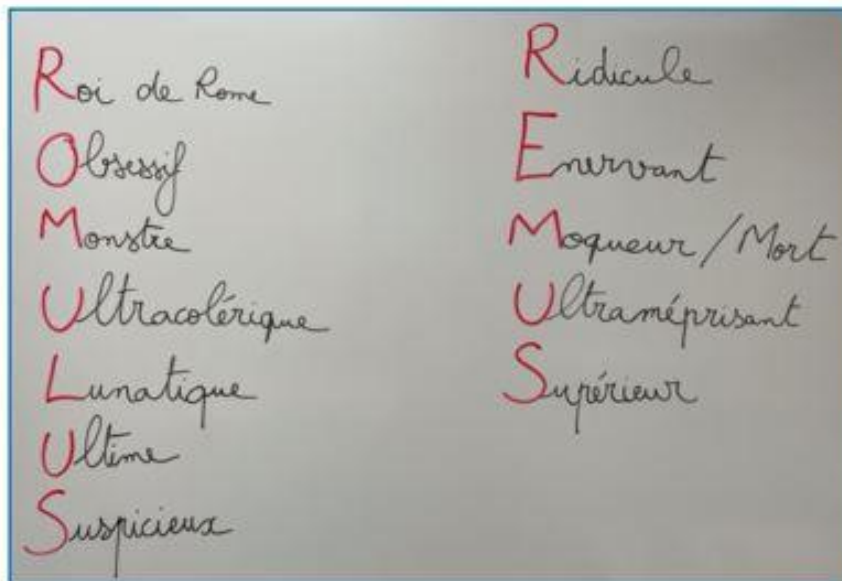 Roi de Rome
Obsessif
Monstre
Ultracolérique
Lunatique
Ultime
Suspicieux
Ridicule
Enervant
Moqueur / Mort
Ultraméprisant
Supérieur